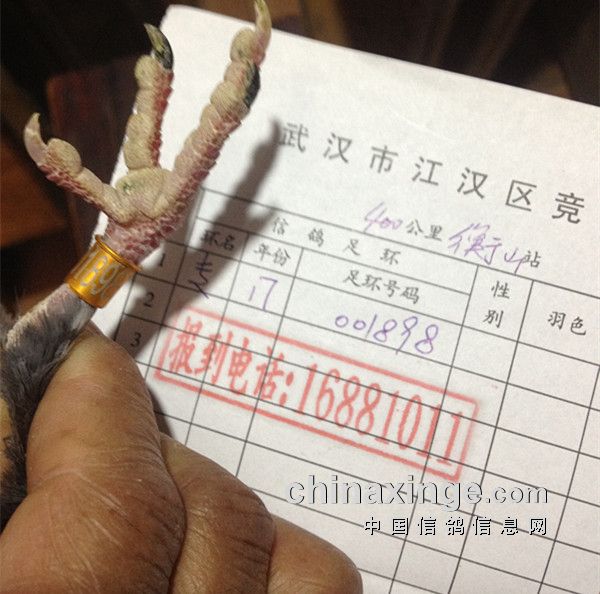 武汉市江汉区竞
400公里 衡山站
信鸽足环
环名 年份 足环号码 性别 羽色
1 17 001898
2
3
报到电话:16881011
chinaxinge.com
中国信鸽信息网